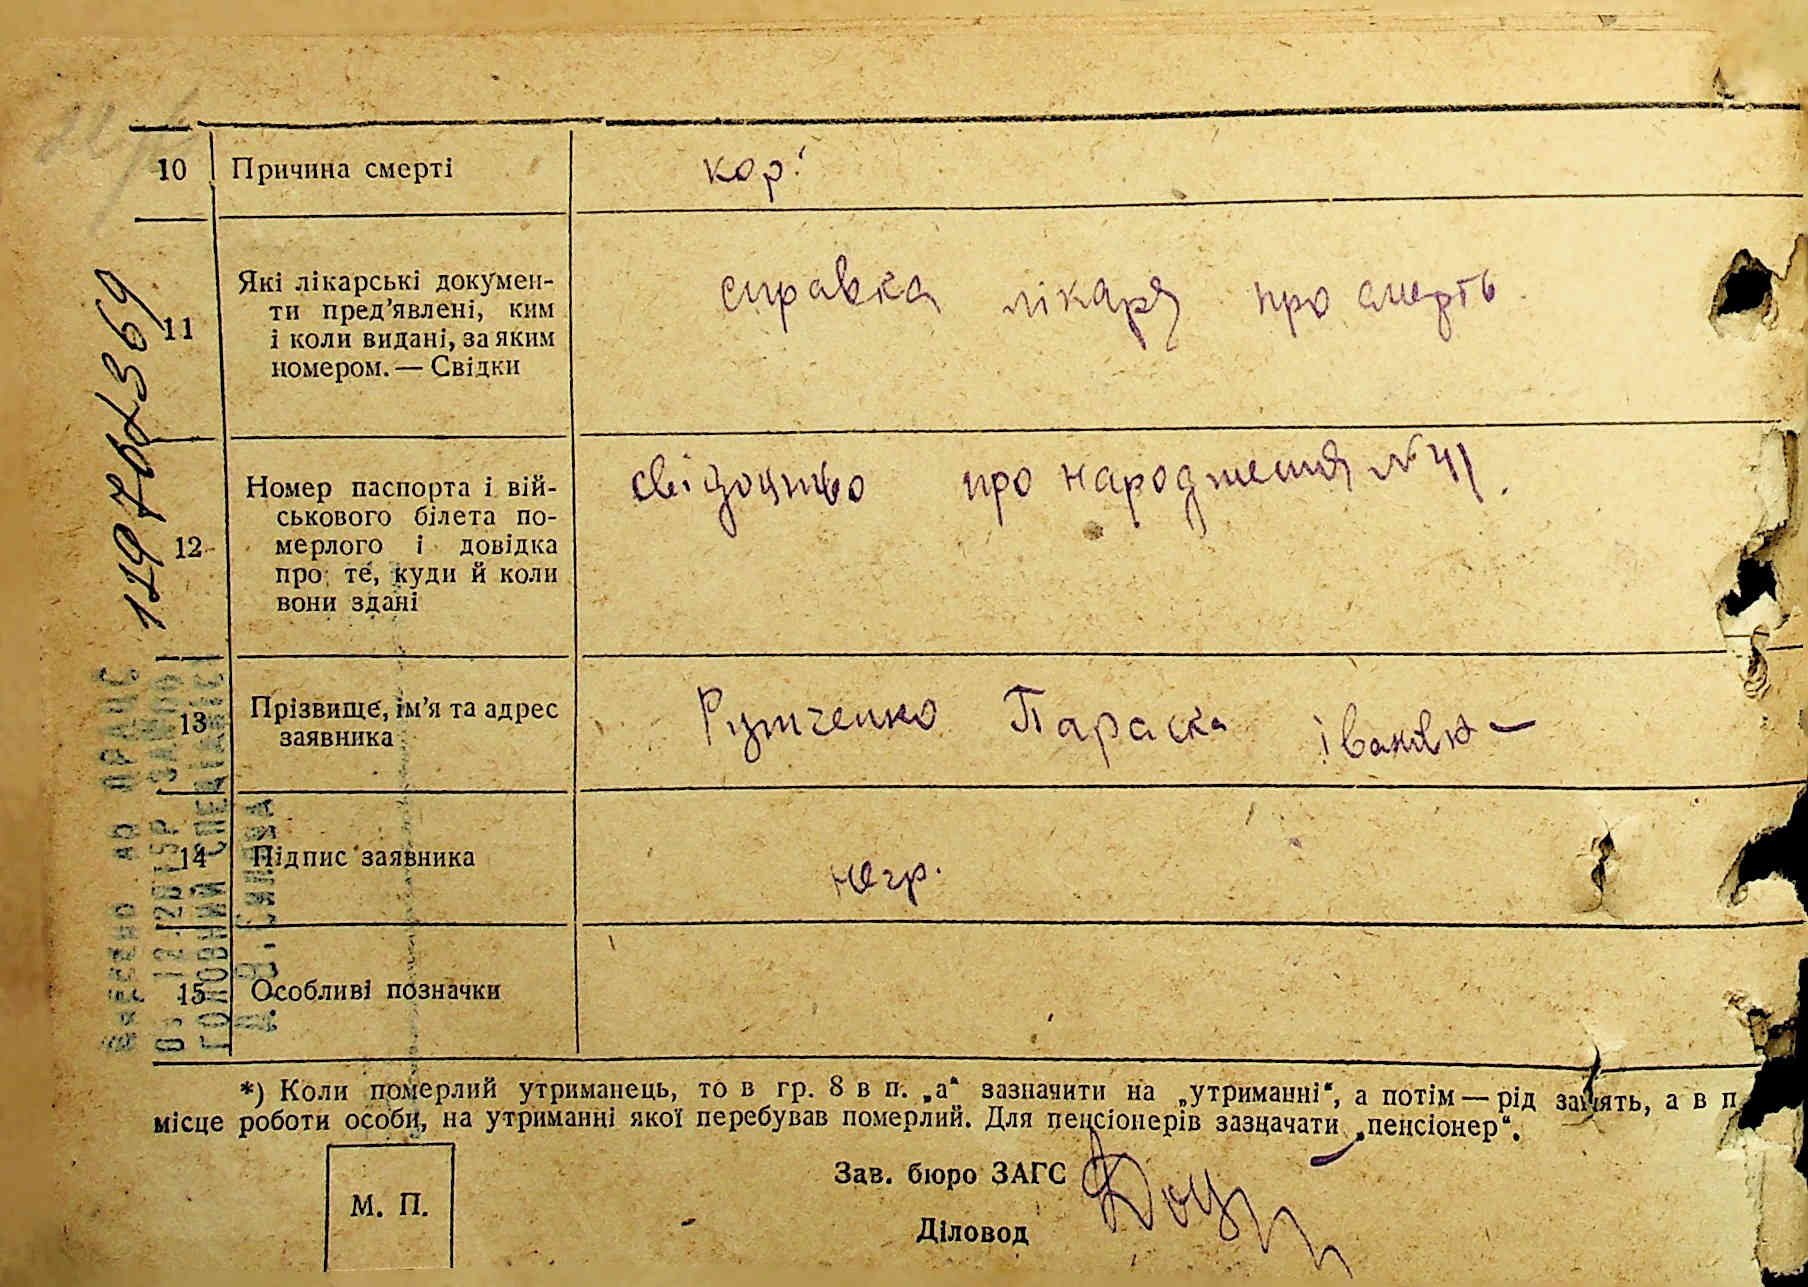 10 Причина смерті кор.
Які лікарські докумен-
ти пред’явлені, ким
11 і коли видані, за яким
номером. — Свідки
справка лікаря про смерть.
Номер паспорта і вій-
ськового білета по-
12 мерлого і довідка
про те, куди й коли
вони здані
свідоцтво про народження № 41.
13 Прізвище, ім’я та адрес
заявника
Параска Івановна
14 Підпис заявника негр.
15 Особливі позначки
*) Коли померлий утриманець, то в гр. 8 в п. „а“ зазначити на „утриманні“, а потім — рід занять, а в п
місце роботи особи, на утриманні якої перебував померлий. Для пенсіонерів зазначати „пенсіонер“.
М. П.
Зав. бюро ЗАГС
Діловод
ГОЛОВНИЙ СПЕЦІАЛІСТ